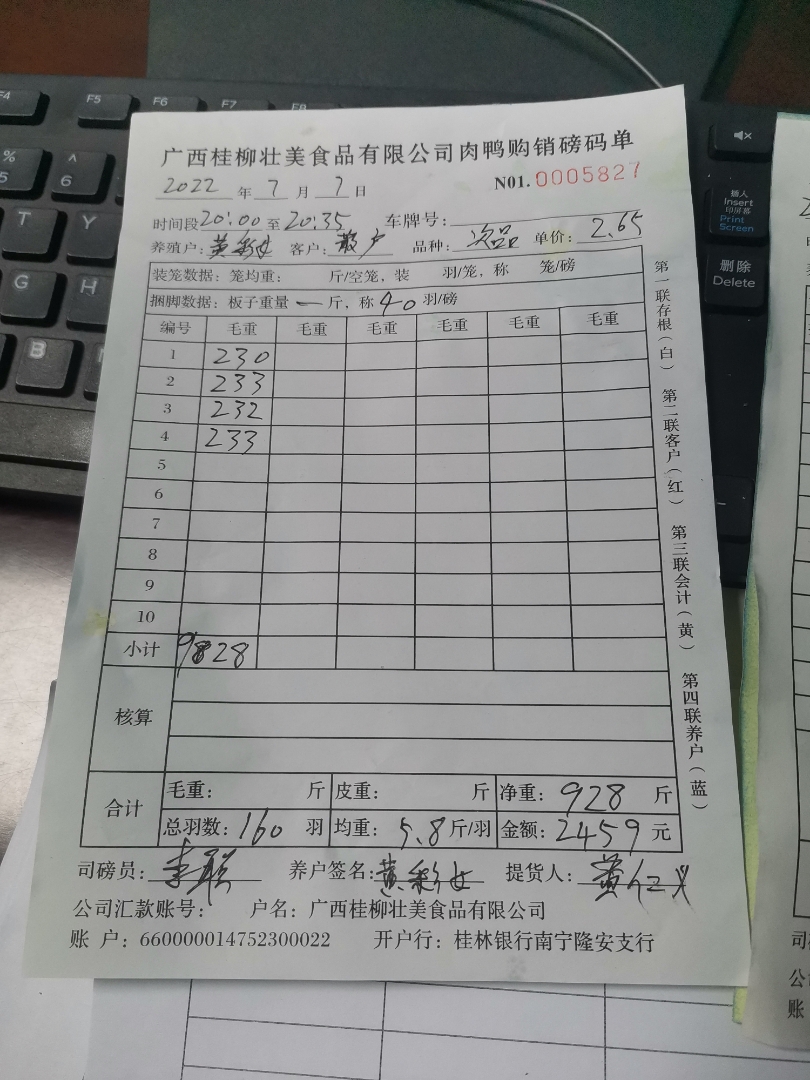 广西桂柳壮美食品有限公司肉鸭购销磅码单
2022 年 7 月 7 日 N01.0005827
时间段20:00至20:35 车牌号:
养殖户:黄彩女 客户:散户 品种:次品 单价:2.65
装笼数据:笼均重: 斤/空笼,装 羽/笼,称 笼/磅
捆脚数据:板子重量 一 斤,称 40 羽/磅
编号 毛重 毛重 毛重 毛重 毛重 毛重
1 230
2 233
3 232
4 233
5
6
7
8
9
10
小计 9828
核算
合计 毛重: 斤 皮重: 斤 净重: 928 斤
总羽数:160 羽 均重: 5.8斤/羽 金额:2459 元
司磅员:李联 养户签名:黄彩女 提货人:黄仁义
公司汇款账号: 户名:广西桂柳壮美食品有限公司
账 户:660000014752300022 开户行:桂林银行南宁隆安支行
第一联存根(白) 第二联客户(红) 第三联会计(黄) 第四联养户(蓝)
F4 F5 F6 F7 F8
% 5 ^ 6
T Y
G H
B N
插入 Insert 印屏幕 Print Screen
删除 Delete
司
公
账